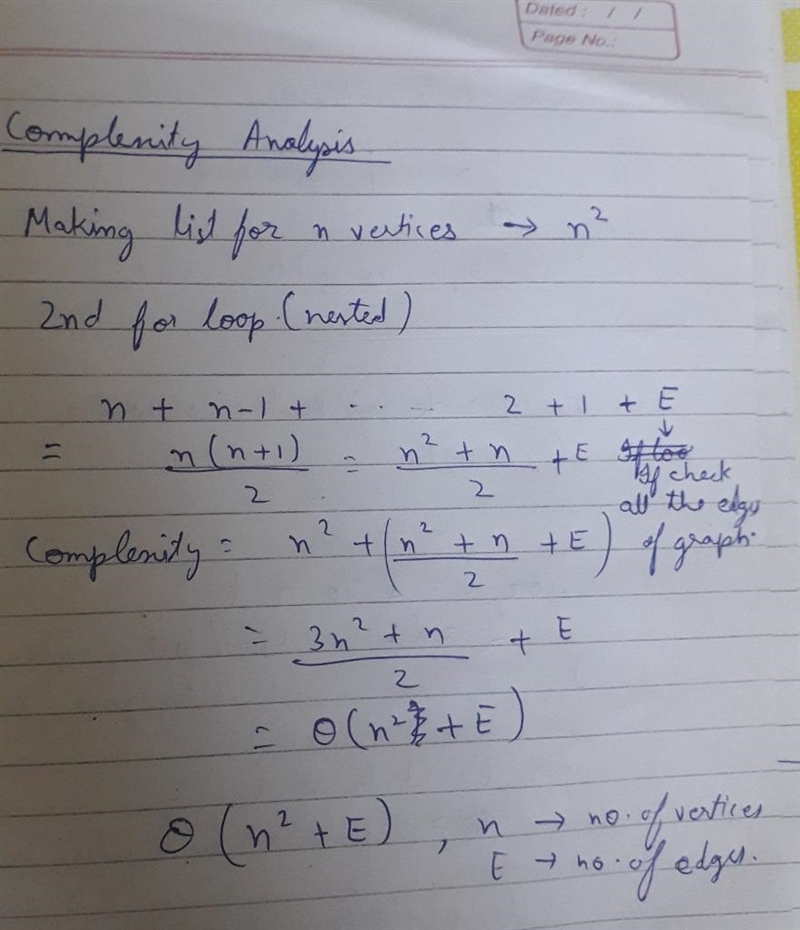 Dated : / /
Page No.:
Complenity Analysis
Making list for n vertices → n²
2nd for loop. (nested)
n + n-1 + . . . . . 2 + 1 + E
= n(n+1)/2 = n² + n/2 + E ↓ If check
all the edges
Complenity = n² + (n² + n/2 + E) of graph.
= 3n² + n/2 + E
= θ(n² + E)
θ (n² + E) , n → no. of vertices
E → no. of edges.